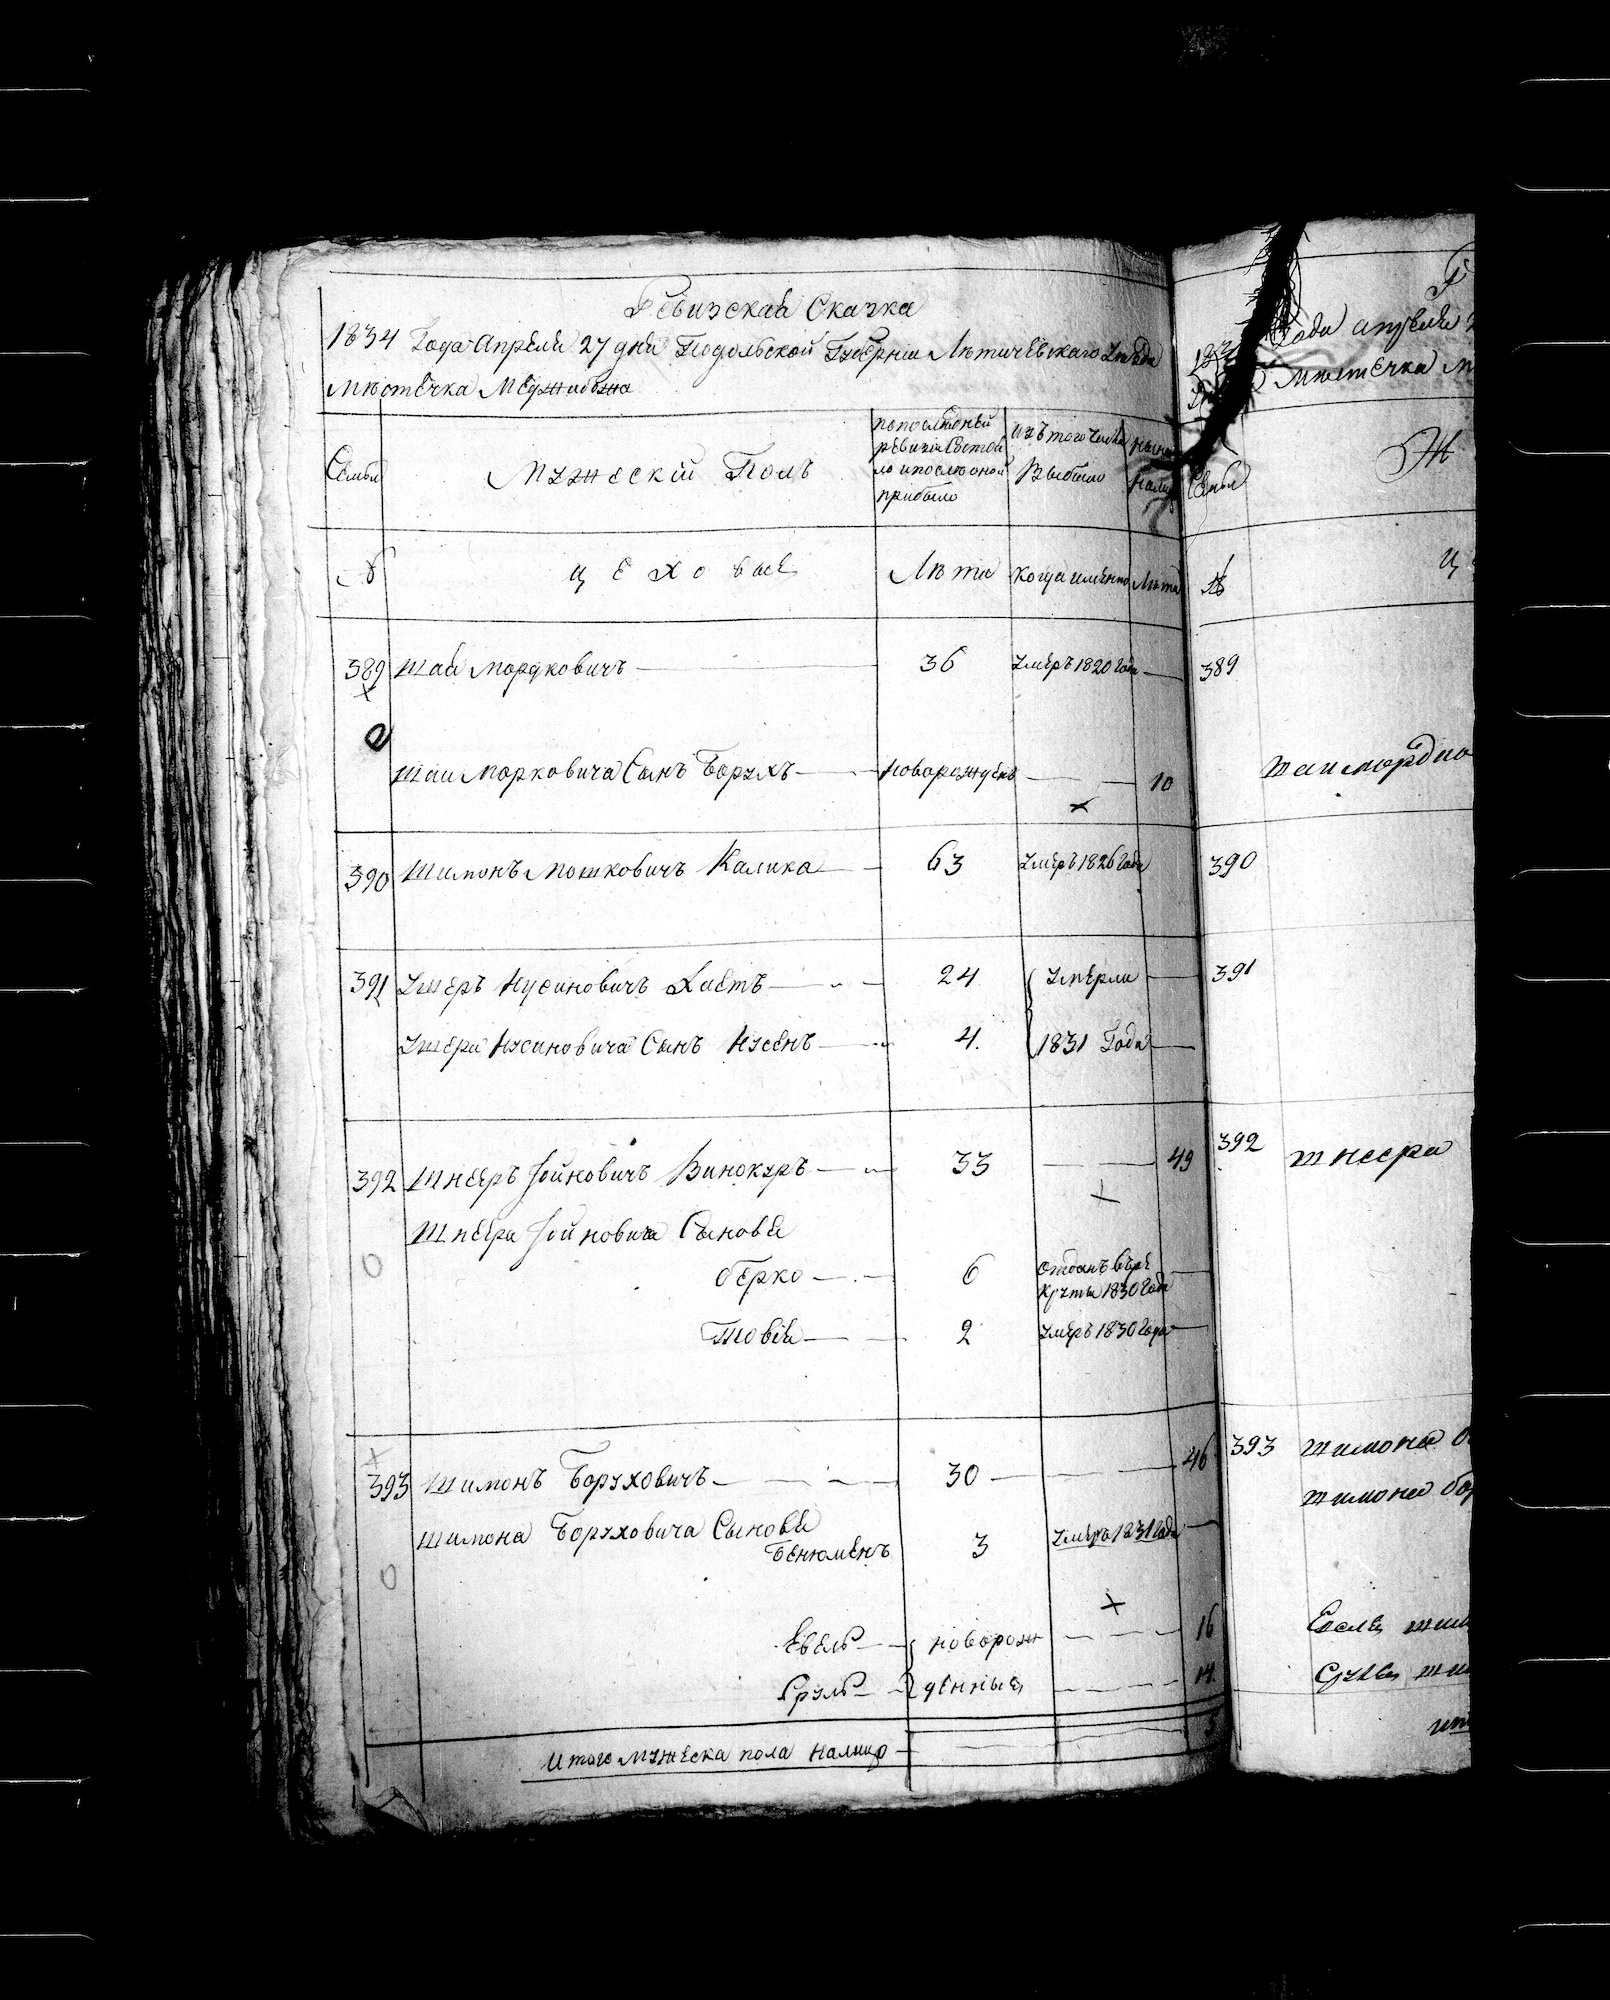 Ревизская Сказка
1834 Года Апреля 27 дня Подольской Губернии Летичевскаго Уезда
Местечка Меджибожа
Семьи
Мужеский Полъ
по последней
ревизіи Состоя
ло и после оной
прибыло
Изъ того числа
Выбыло
ныне
№
цеховые
Лета
Когда именно
Лета
389 Шая Мордковичъ 36 умеръ 1820 Года
Шаи Морковича Сынъ Борухъ новорожденъ 10
390 Шимонъ Мошковичъ Калика 63 умеръ 1826 Года
391 Ушеръ Нусиновичъ Хаетъ 24 умерли
Ушера Нусиновича Сынъ Нусенъ 4. 1831 Года
392 Шнееръ Іойновичъ Винокуръ 33 49
Шнеера Іойновича Сыновья
Берко 6 отданъ въ ре
круты 1830 Года
Товія 2 умеръ 1830 Года
393 Шимонъ Боруховичъ 30 46
Шимона Боруховича Сыновья
Бенюменъ 3 умеръ 1831 Года
Евель новорож 16
Сруль денныя 14
Итого мужеска пола налицо
Года апреля
Местечка М
Семьи
Ж
№
ц
389
Шаи мордко
390
391
392 Шнеера
393 Шимона
Шимона Бор